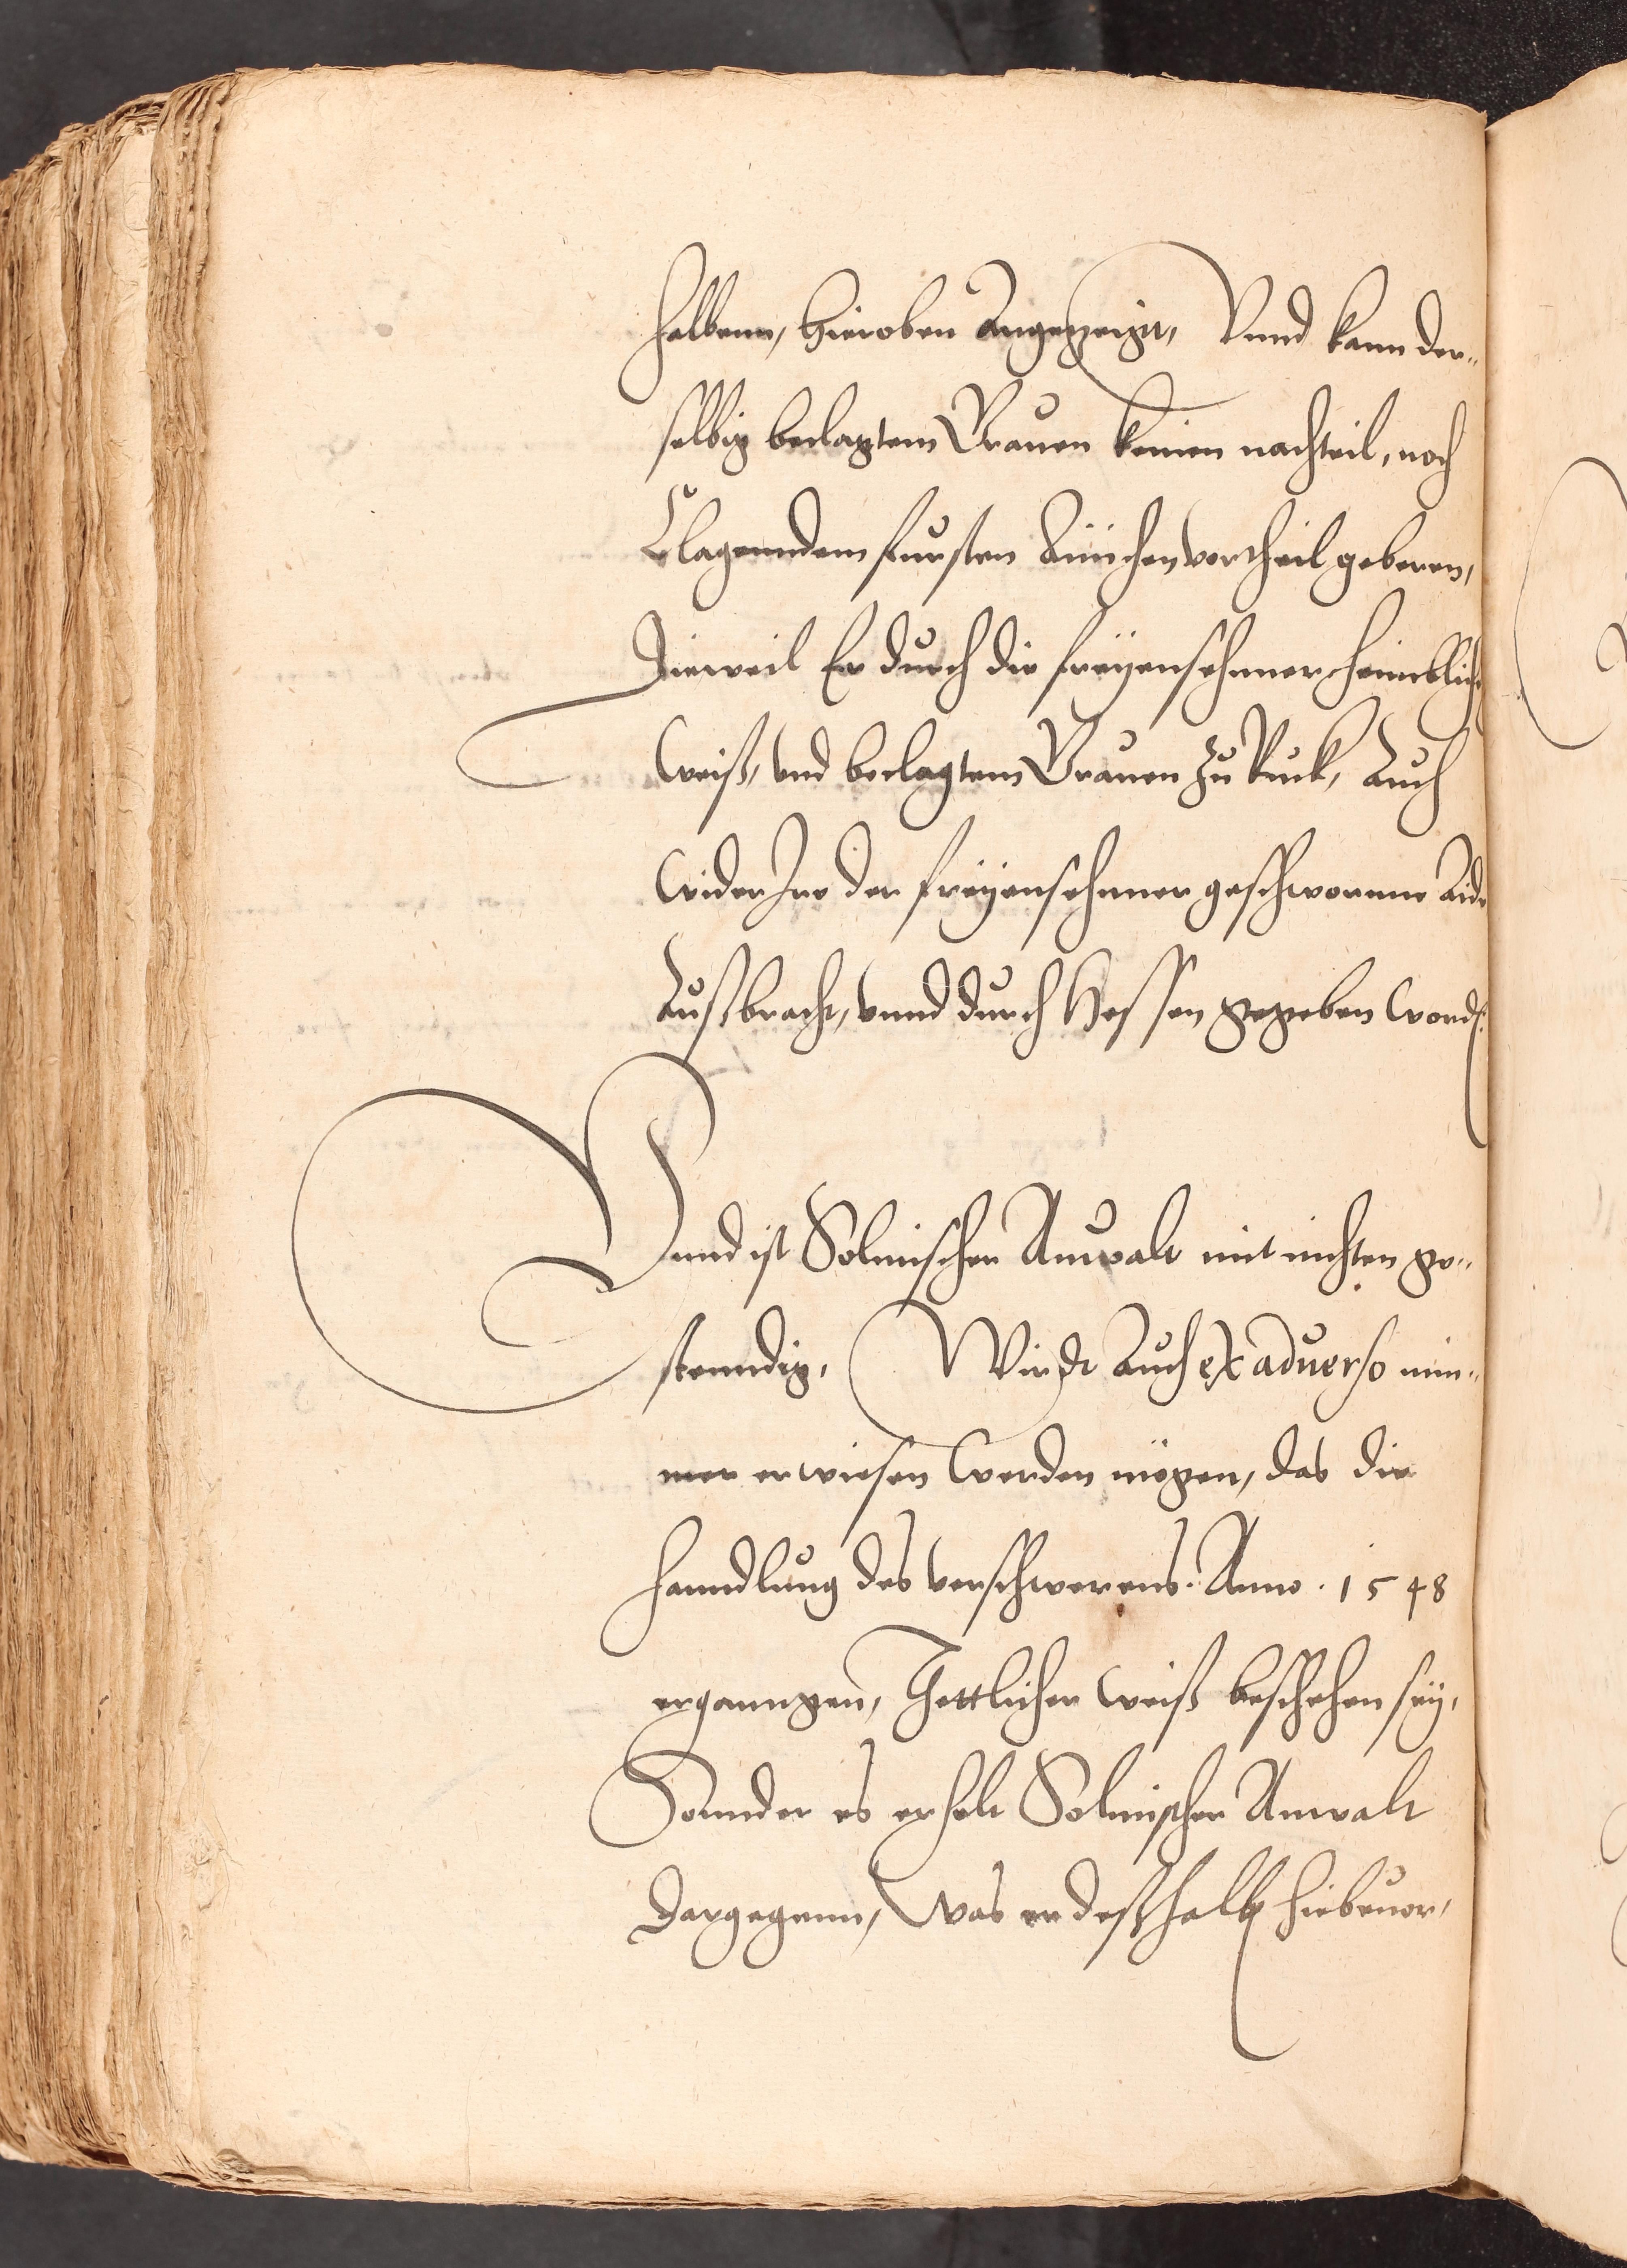 halbenn, hieroben Angezeigt, Vnnd kann der„
selbig beclagtem Grauen keinen nachteil, noch
Clagenndem fursten Ainichen vortheil geberen,
Dieweil Er durch die freyensehener heimblich„
weiß, vnd beclagtem Grauen zu Ruck, Auch
wider Ire der freyensehener geschworne Aide
Außbracht, vnnd durch Hessen gegeben word.
Vnnd ist Solmischer Anwalt mit nichten ge„
stenndig, Wirdt Auch ex aduerso nim„
mer erwiesen werden mögen, das die
Hanndlung des verschwerens. Anno. 1548
ergangen, Thettlicher weiß beschehen sey,
Sonnder es erholt Solmischer Anwalt
Dargegenn, Was er deßhalb hiebeuor,